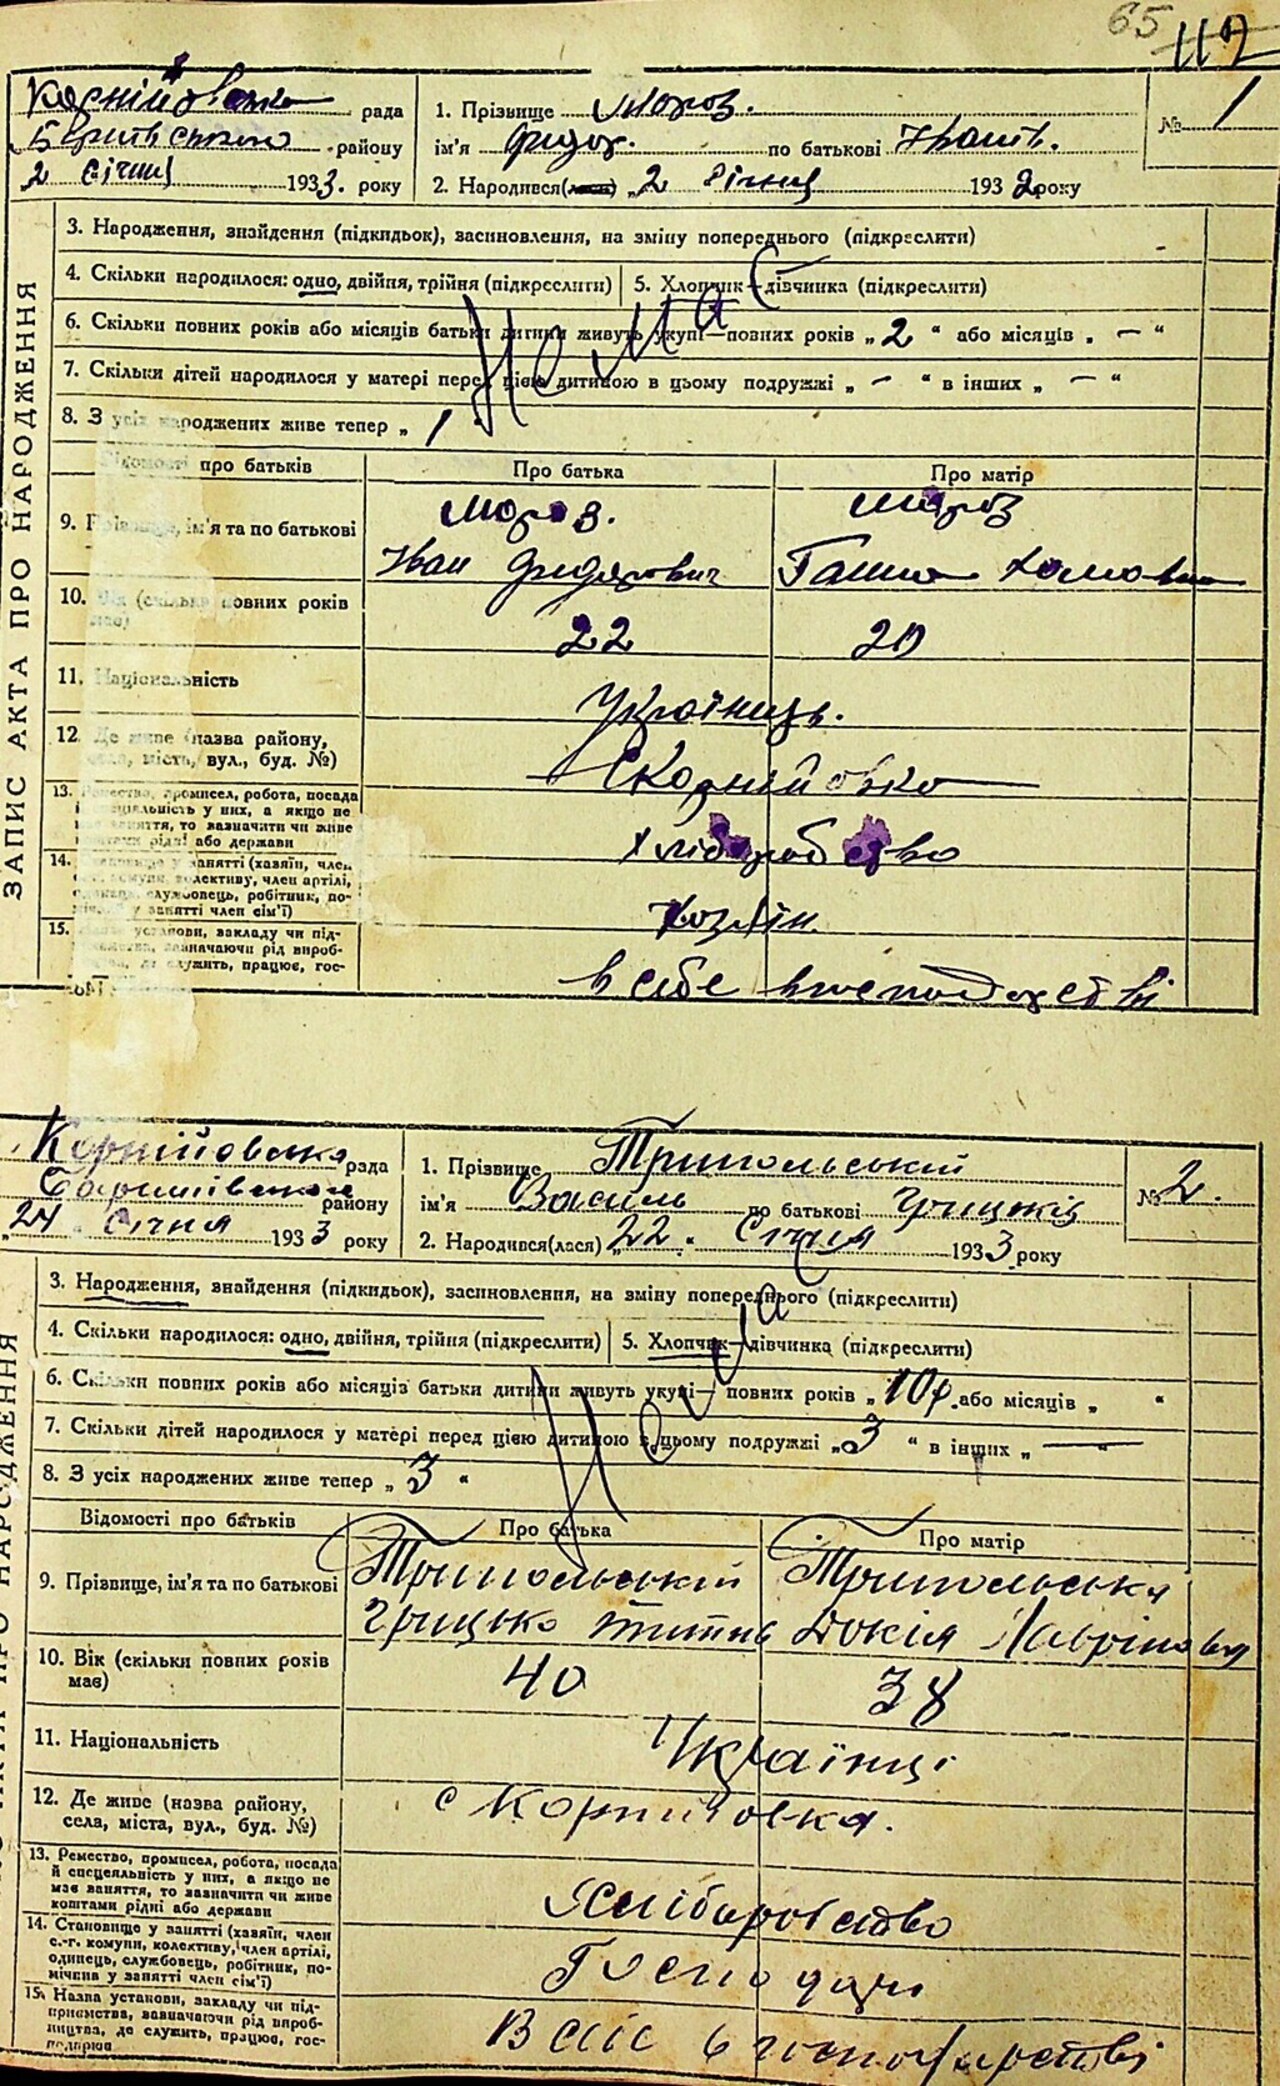 65 112
Корнійовська рада
району
2 січня 1933. року
1. Прізвище Мороз.
ім'я Фидор. по батькові Іванів.
2. Народився(лася) „2 Січня 1932 року
№ 1
ЗАПИС АКТА ПРО НАРОДЖЕННЯ
3. Народження, знайдення (підкидьок), засиновлення, на зміну попереднього (підкреслити)
4. Скільки народилося: одно, двійня, трійня (підкреслити) 5. Хлопчик—дівчинка (підкреслити)
6. Скільки повних років або місяців батьки дитини живуть укупі—повних років „2“ або місяців „—“
7. Скільки дітей народилося у матері перед цією дитиною в цьому подружжі „—“ в інших „—“
8. З усіх народжених живе тепер „1“
Нема
Відомості про батьків Про батька Про матір
9. Прізвище, ім'я та по батькові
Мороз. Мороз
Іван Фидорович Ганна Хомовна
10. Вік (скільки повних років має)
22 20
11. Національність
Українць.
12. Де живе (назва району, села, міста, вул., буд. №)
С Корнійовко
13. Ремество, промисел, робота, посада й спеціяльність у них, а якщо не має заняття, то зазначити чи живе коштами рідні або держави
Хліборобство
14. Становище у занятті (хазяїн, член с.-г. комуни, колективу, член артілі, одинець, службовець, робітник, помічний у занятті член сім'ї)
Хозяїн.
15. Назва установи, закладу чи підприємства, зазначаючи рід виробництва, де служить, працює, гос-
в себе в господарстві
Корнійовска рада
Баришівського району
„24 Січня 1933 року
1. Прізвище Трипольський
ім'я Василь по батькові Грицьків
2. Народився(лася) „22. Січня 1933 року
№ 2.
3. Народження, знайдення (підкидьок), засиновлення, на зміну попереднього (підкреслити)
4. Скільки народилося: одно, двійня, трійня (підкреслити) 5. Хлопчик—дівчинка (підкреслити)
6. Скільки повних років або місяців батьки дитини живуть укупі— повних років „10р. або місяців „ “
7. Скільки дітей народилося у матері перед цією дитиною в цьому подружжі „3“ в інших „—“
8. З усіх народжених живе тепер „3“
Відомості про батьків Про батька Про матір
9. Прізвище, ім'я та по батькові
Трипольський Трипольська
Грицько Титив Докія Лавріновна
10. Вік (скільки повних років має)
40 38
11. Національність
Українці
12. Де живе (назва району, села, міста, вул., буд. №)
с Корнийовка.
13. Ремество, промисел, робота, посада й спецеяльність у них, а якщо не має заняття, то зазначити чи живе коштами рідні або держави
Хліборобство
14. Становище у занятті (хазяїн, член с.-г. комуни, колективу, член артілі, одинець, службовець, робітник, помічний у занятті член сім'ї)
Господарі
15. Назва установи, закладу чи підприємства, зазначаючи рід виробництва, де служить, працює, господарює
В сііс в господарстві